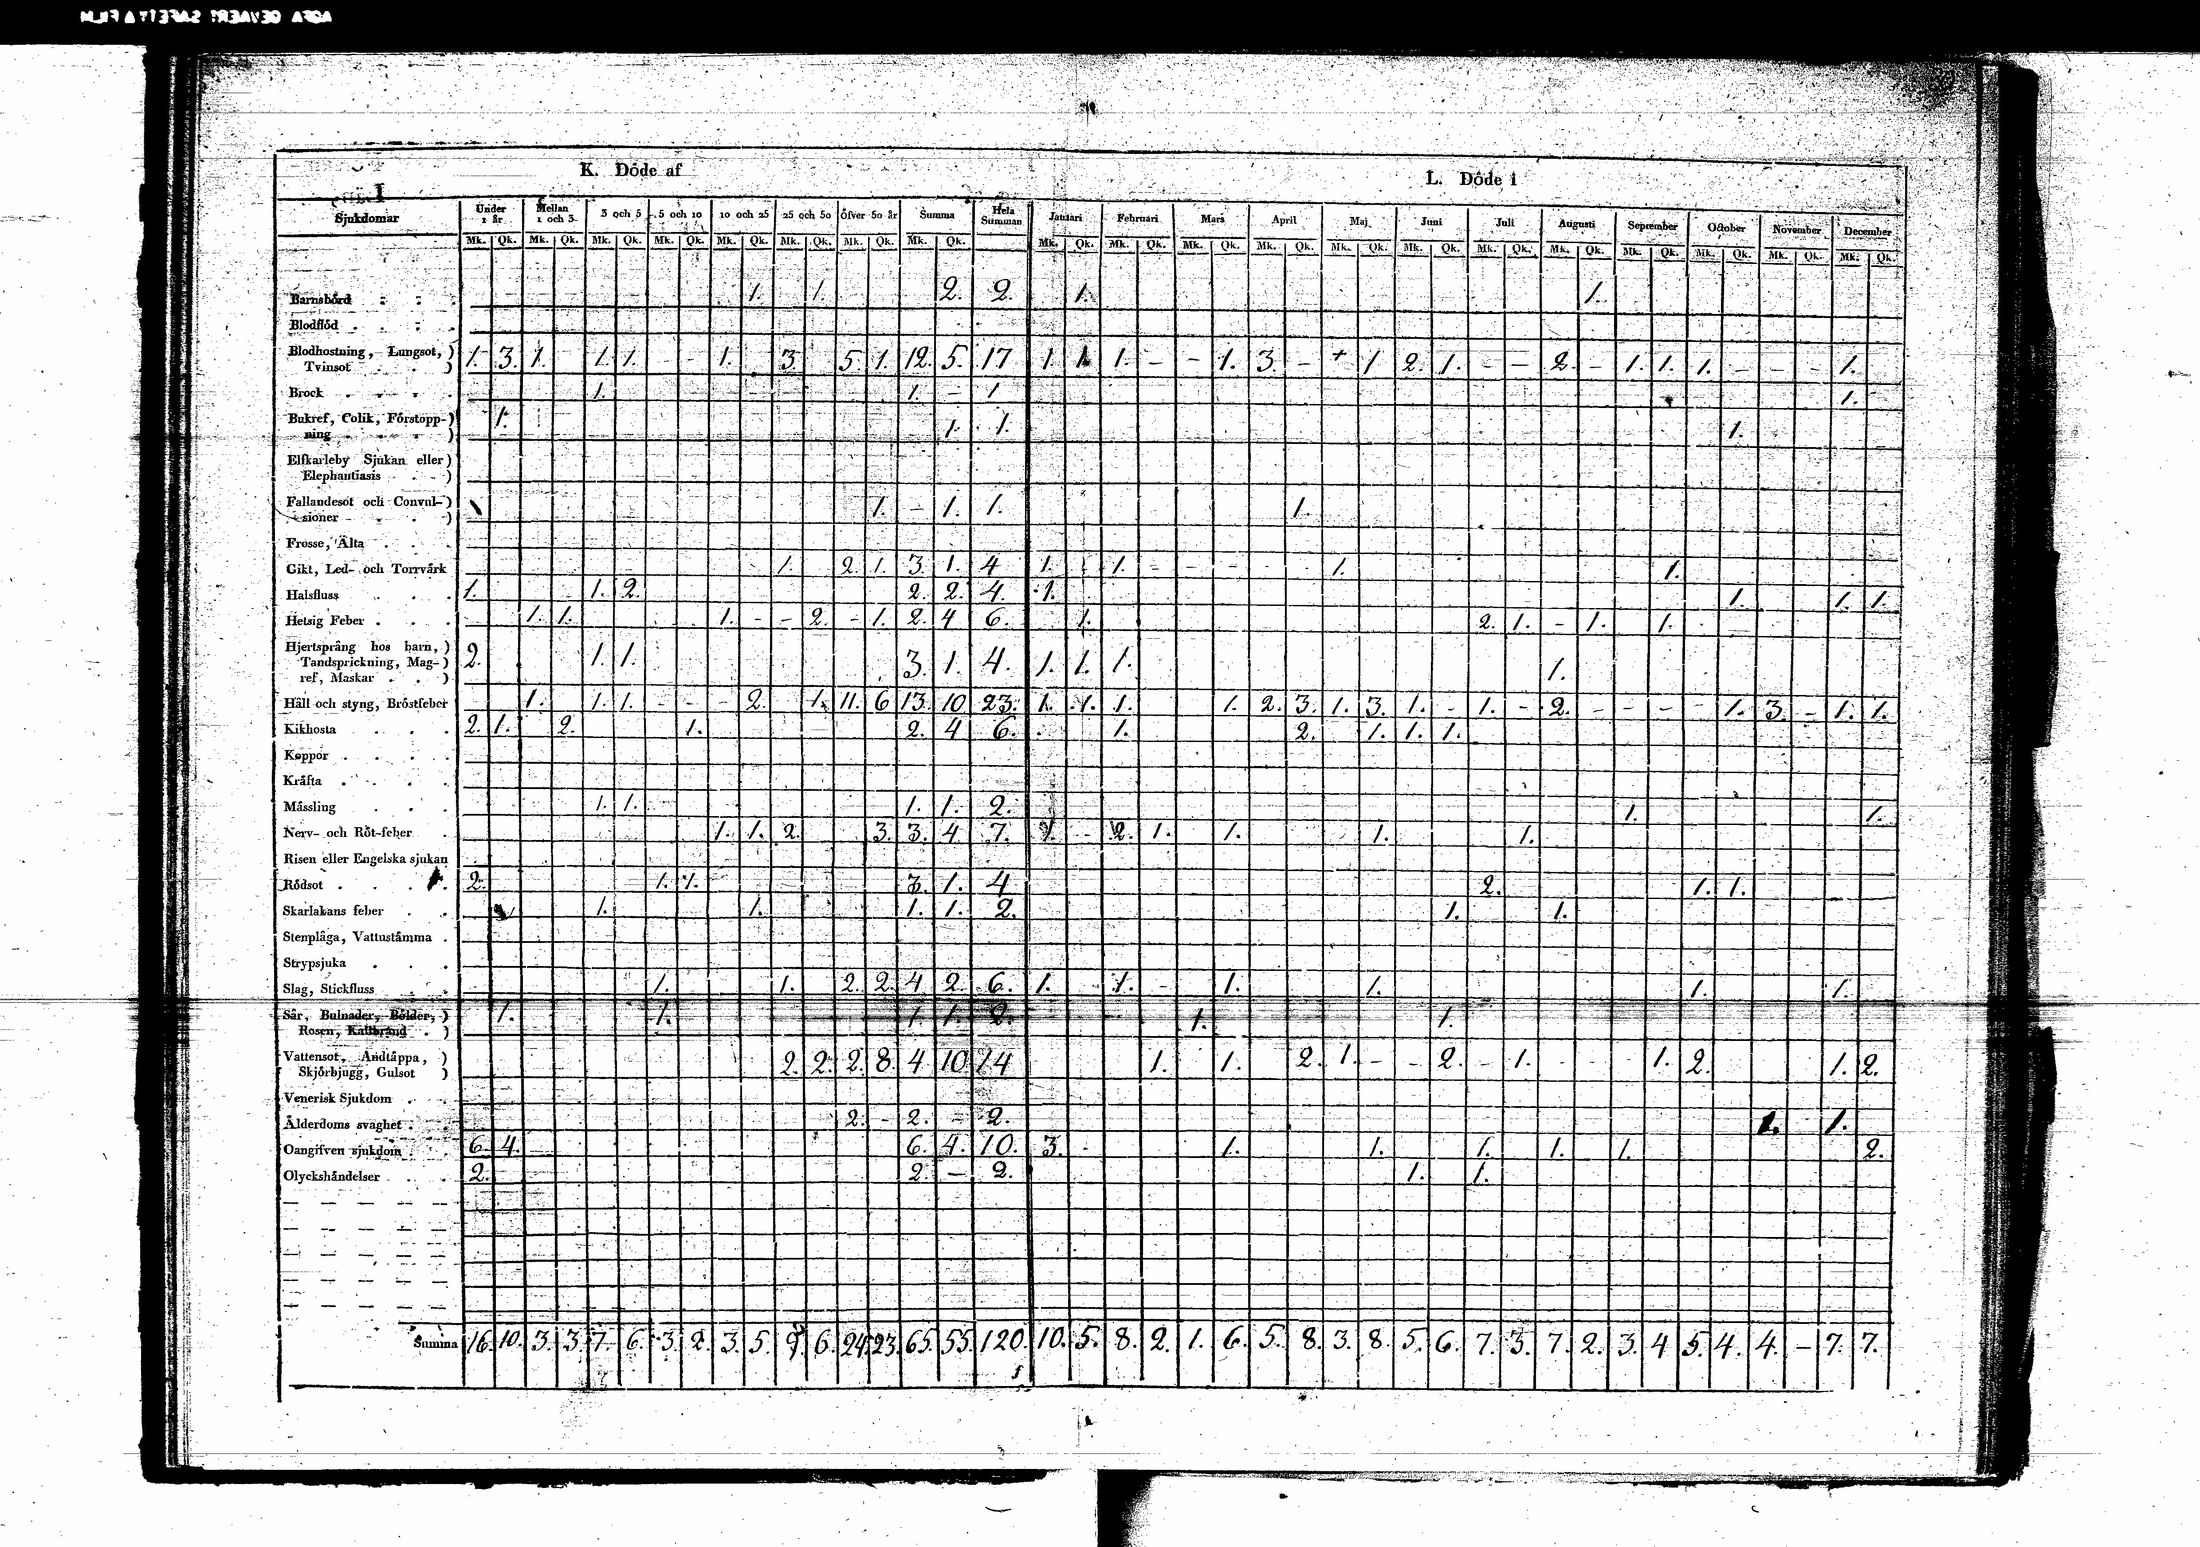 K. Döde af
L. Döde i
Sjukdomar Under 1 år Mellan 1 och 3 3 och 5 5 och 10 10 och 25 25 och 50 öfver 50 år Summa Hela Summan Januari Februari Mars April Maj Juni Juli Augusti September October November December
Mk. Qk. Mk. Qk. Mk. Qk. Mk. Qk. Mk. Qk. Mk. Qk. Mk. Qk. Mk. Qk. Mk. Qk. Mk. Qk. Mk. Qk. Mk. Qk. Mk. Qk. Mk. Qk. Mk. Qk. Mk. Qk. Mk. Qk. Mk. Qk. Mk. Qk. Mk. Qk.
Barnsbörd 1. 1. 2. 2. 1. 1.
Blodflöd
Blodhostning, Lungsot, Tvinsot 1. 3. 1. 1. 1. - - 1. 3. 5. 1. 12. 5. 17 1. 1. 1. - - 1. 3. - 1 2. 1. - - 2. - 1. 1. 1. - - - 1.
Brock 1. 1. - 1 1.
Bukref, Colik, Förstopp-
ning 1. 1. 1. 1.
Elfkarleby Sjukan eller
Elephantiasis
Fallandesot och Convul-
sioner 1. - 1. 1. 1.
Frosse, Älta
Gikt, Led- och Torrvärk 1. 2. 1. 3. 1. 4 1. 1. - - - - 1. 1.
Halsfluss 1. 1. 2. 2. 2. 4. 1. 1. 1. 1.
Hetsig Feber 1. 1. 1. - - 2. - 1. 2. 4 6. 1. 2. 1. - 1. 1.
Hjertsprång hos barn,
Tandsprickning, Mag-
ref, Maskar 2. 1. 1. 3. 1. 4. 1. 1. 1. 1.
Håll och styng, Bröstfeber 1. 1. 1. - - - 2. 1. 11. 6 13. 10 23. 1. 1. 1. 1. 2. 3. 1. 3. 1. - 1. - 2. - - - - 1. 3. - 1. 1.
Kikhosta 2. 1. 2. 1. 2. 4 6. 1. 2. 1. 1. 1.
Koppor
Kräfta
Mässling 1. 1. 1. 1. 2. 1. 1.
Nerv- och Röt-feber 1. 1. 2. 3. 3. 4 7. 1. - 2. 1. 1. 1. 1.
Risen eller Engelska sjukan
Rödsot 2. 1. 1. 3. 1. 4 2. 1. 1.
Skarlakans feber 1. 1. 1. 1. 2. 1. 1.
Stenplåga, Vattustämma
Strypsjuka
Slag, Stickfluss 1. 1. 2. 2. 4 2. 6. 1. 1. - 1. 1. 1. 1.
Sår, Bulnader, Bölder,
Rosen, Kallbrand 1. 1. 1. 1. 2. 1. 1.
Vattensot, Andtäppa,
Skjörbjugg, Gulsot 2. 2. 2. 8. 4 10. 14 1. 1. 2. 1. - - 2. - 1. - - 1. 2. 1. 2.
Venerisk Sjukdom
Ålderdoms svaghet 2. - 2. - 2. 1. 1.
Oangifven sjukdom 6. 4. 6. 4. 10. 3. 1. 1. 1. 1. 1. 2.
Olyckshändelser 2. 2. - 2. 1. 1.
Summa 16. 10. 3. 3. 7. 6. 3. 2. 3. 5. 9. 6. 24. 23. 65. 55. 120. 10. 5. 8. 2. 1. 6. 5. 8. 3. 8. 5. 6. 7. 3. 7. 2. 3. 4 5. 4. 4. - 7. 7.